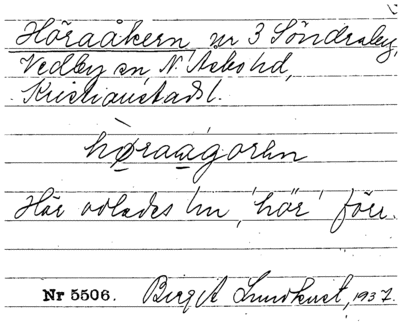 Höraåkern, nr 3 Söndraby,
Vedby sn, N. Åsbo hd,
Kristianstads l.
hø̀raagorn
Här odlades lin, 'hör' förr.
Nr 5506. Birgit Lundkvist, 1937.